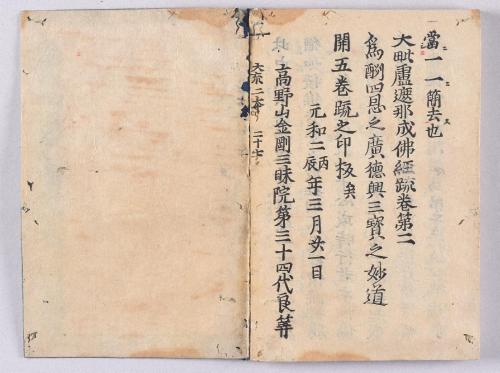 當一一簡去也
大毗盧遮那成佛經疏卷第二
為酬四恩之廣德興三寶之妙道
開五卷疏之印板矣
元和二丙辰年三月廿一日
高野山金剛三昧院第三十四代良算